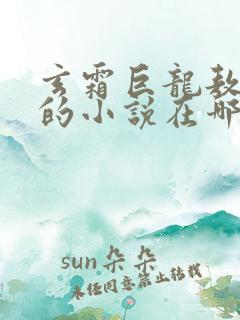 玄霜巨龍敖
的小説在哪
sun朵朵
未经同意禁止转载